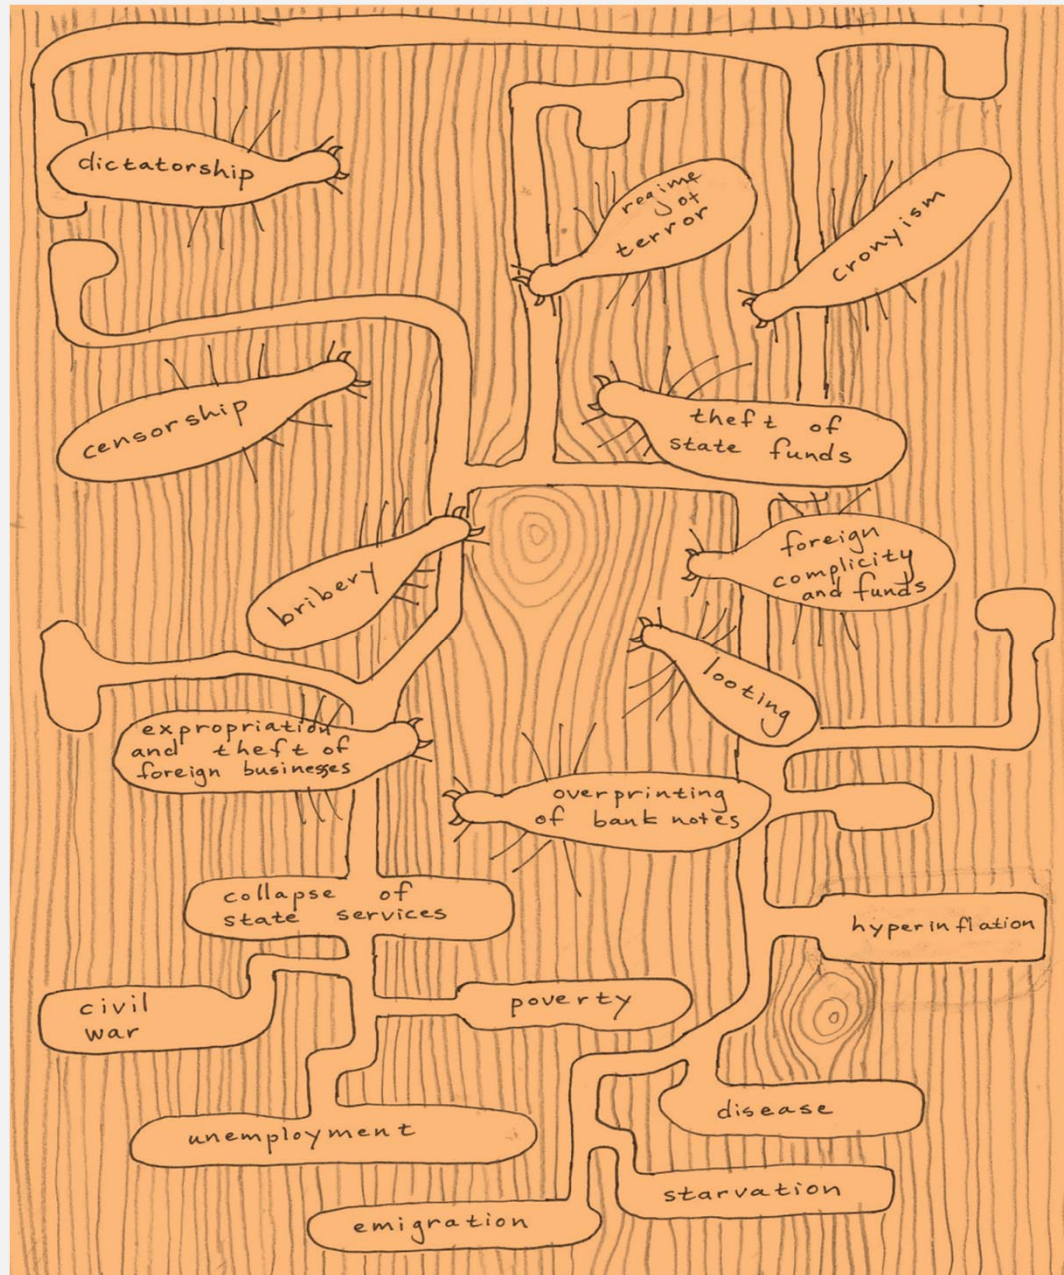 dictatorship
regime
of
terror
cronyism
censorship
theft of
state funds
bribery
foreign
complicity
and funds
looting
expropriation
and theft of
foreign businesses
overprinting
of bank notes
collapse of
state services
hyperinflation
civil
war
poverty
disease
unemployment
starvation
emigration